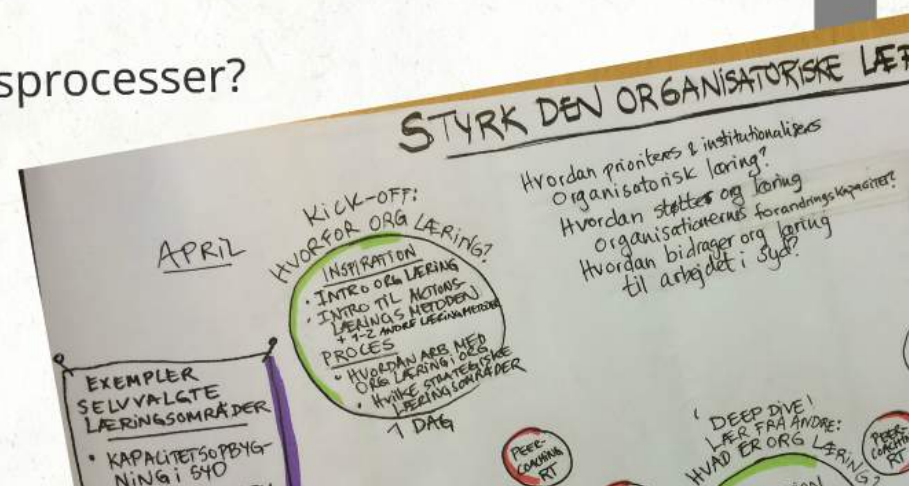 sprocesser?
STYRK DEN ORGANISATORISKE LÆR
Hvordan prioriteres & institutionaliseres
Organisatorisk læring?
Hvordan støttes org læring
organisationernes forandringskapacitet?
Hvordan bidrager org læring
til arbejdet i Syd?
APRIL
KICK-OFF:
HVORFOR ORG LÆRING?
INSPIRATION
· INTRO ORG LÆRING
· INTRO TIL AKTIONS
LÆRINGS METODEN
+ 1-2 ANDRE LÆRINGMETODER
PROCES
· HVORDAN ARB MED
ORG LÆRING I ORG
· HVILKE STRATEGISKE
LÆRINGSOMRÅDER
1 DAG
EXEMPLER
SELVVALGTE
LÆRINGSOMRÅDER
· KAPACITETSOPBYG-
NING I SYD
PEER-
COACHING
RT
'DEEP DIVE!
LÆR FRA ANDRE:
HVAD ER ORG LÆRING?
PEER-
COACHING
RT